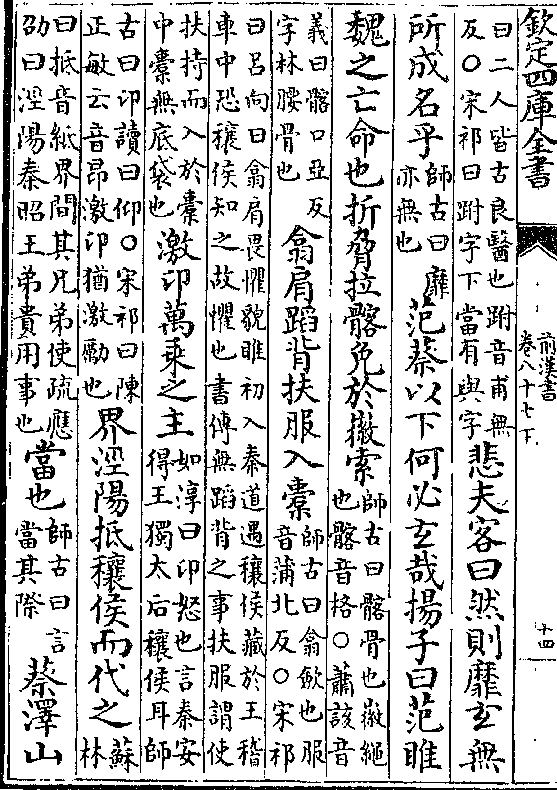 欽定四庫全書
前漢書
卷八十七下
十四
曰二人皆古良醫也跗音甫無
反○宋祁曰跗字下當有與字
悲夫客曰然則靡玄無
所成名乎
師古曰靡
亦無也
范蔡以下何必玄哉揚子曰范雎
魏之亡命也折脅拉髂免於徽索
師古曰髂骨也徽繩
也髂音格○蕭該音
義曰髂口亞反
字林腰骨也
翕肩蹈背扶服入橐
師古曰翕歛也服
音蒲北反○宋祁
曰呂向曰翕肩畏懼貌雎初入秦道遇穰侯藏於王稽
車中恐穰侯知之故懼也書傳無蹈背之事扶服謂使
扶持而入於橐
中橐無底袋也
激卬萬乘之主
如淳曰卬怒也言秦安
得王獨太后穰侯耳師
古曰卬讀曰仰○宋祁曰陳
正敏云音昂激卬猶激勵也
界涇陽抵穰侯而代之
蘇
林
曰抵音紙界間其兄弟使疏應
劭曰涇陽秦昭王弟貴用事也
當也
師古曰言
當其際
蔡澤山